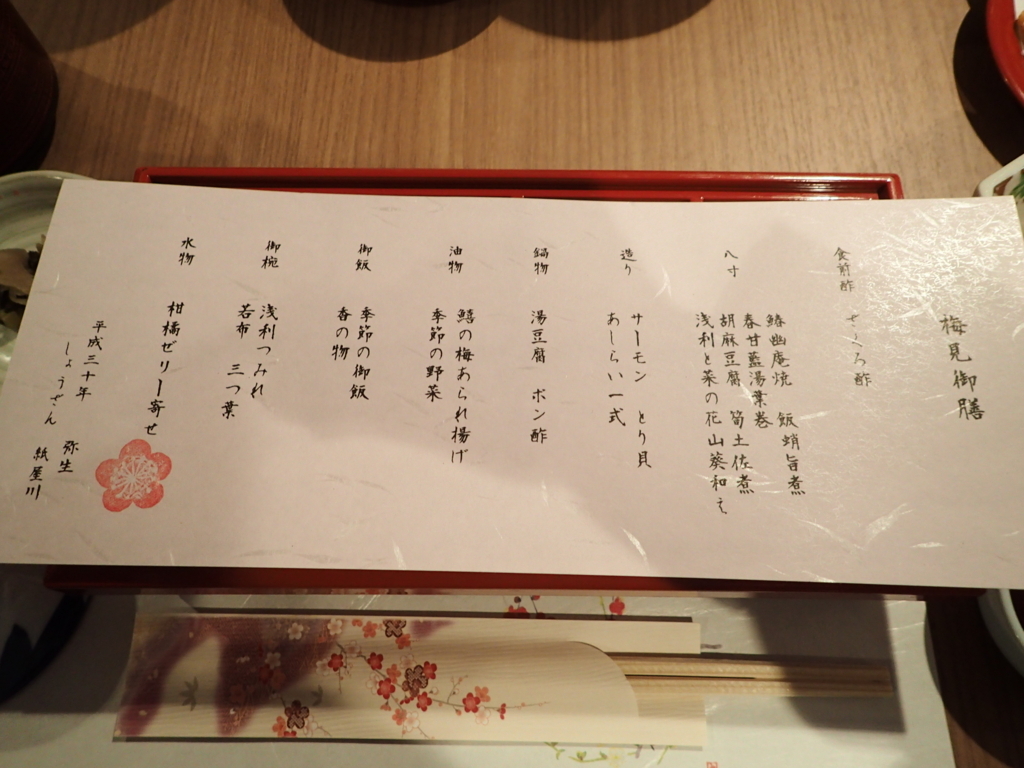 梅見御膳
食前酢 ざくろ酢
八寸
鰆幽庵焼 飯蛸旨煮
春甘藍湯葉巻
胡麻豆腐 筍土佐煮
浅利と菜の花山葵和え
造り
サーモン とり貝
あしらい一式
鍋物 湯豆腐 ポン酢
油物
鱚の梅あられ揚げ
季節の野菜
御飯
季節の御飯
香の物
御椀
浅利つみれ
若布 三つ葉
水物 柑橘ゼリー寄せ
平成三十年 弥生
しょうざん 紙屋川